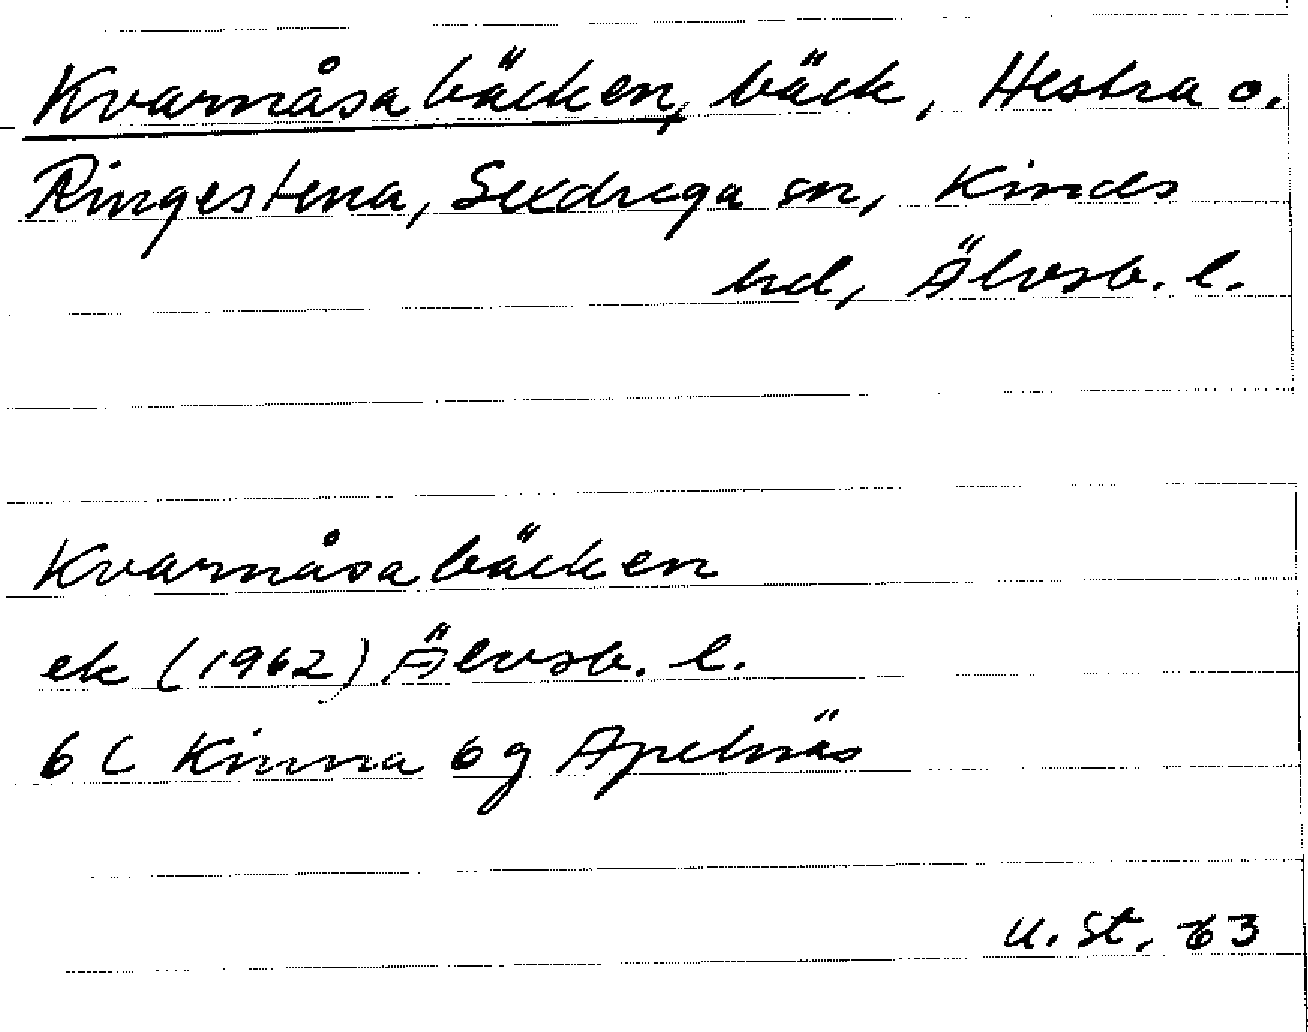 Kvarnåsabäcken, bäck, Hestra o.
Ringestena, Sexdrega sn, Kinds
hd, Älvsb. l.
Kvarnåsabäcken
ek (1962) Älvsb. l.
6 C Kinna 6 g Apelnäs
U. St. 63